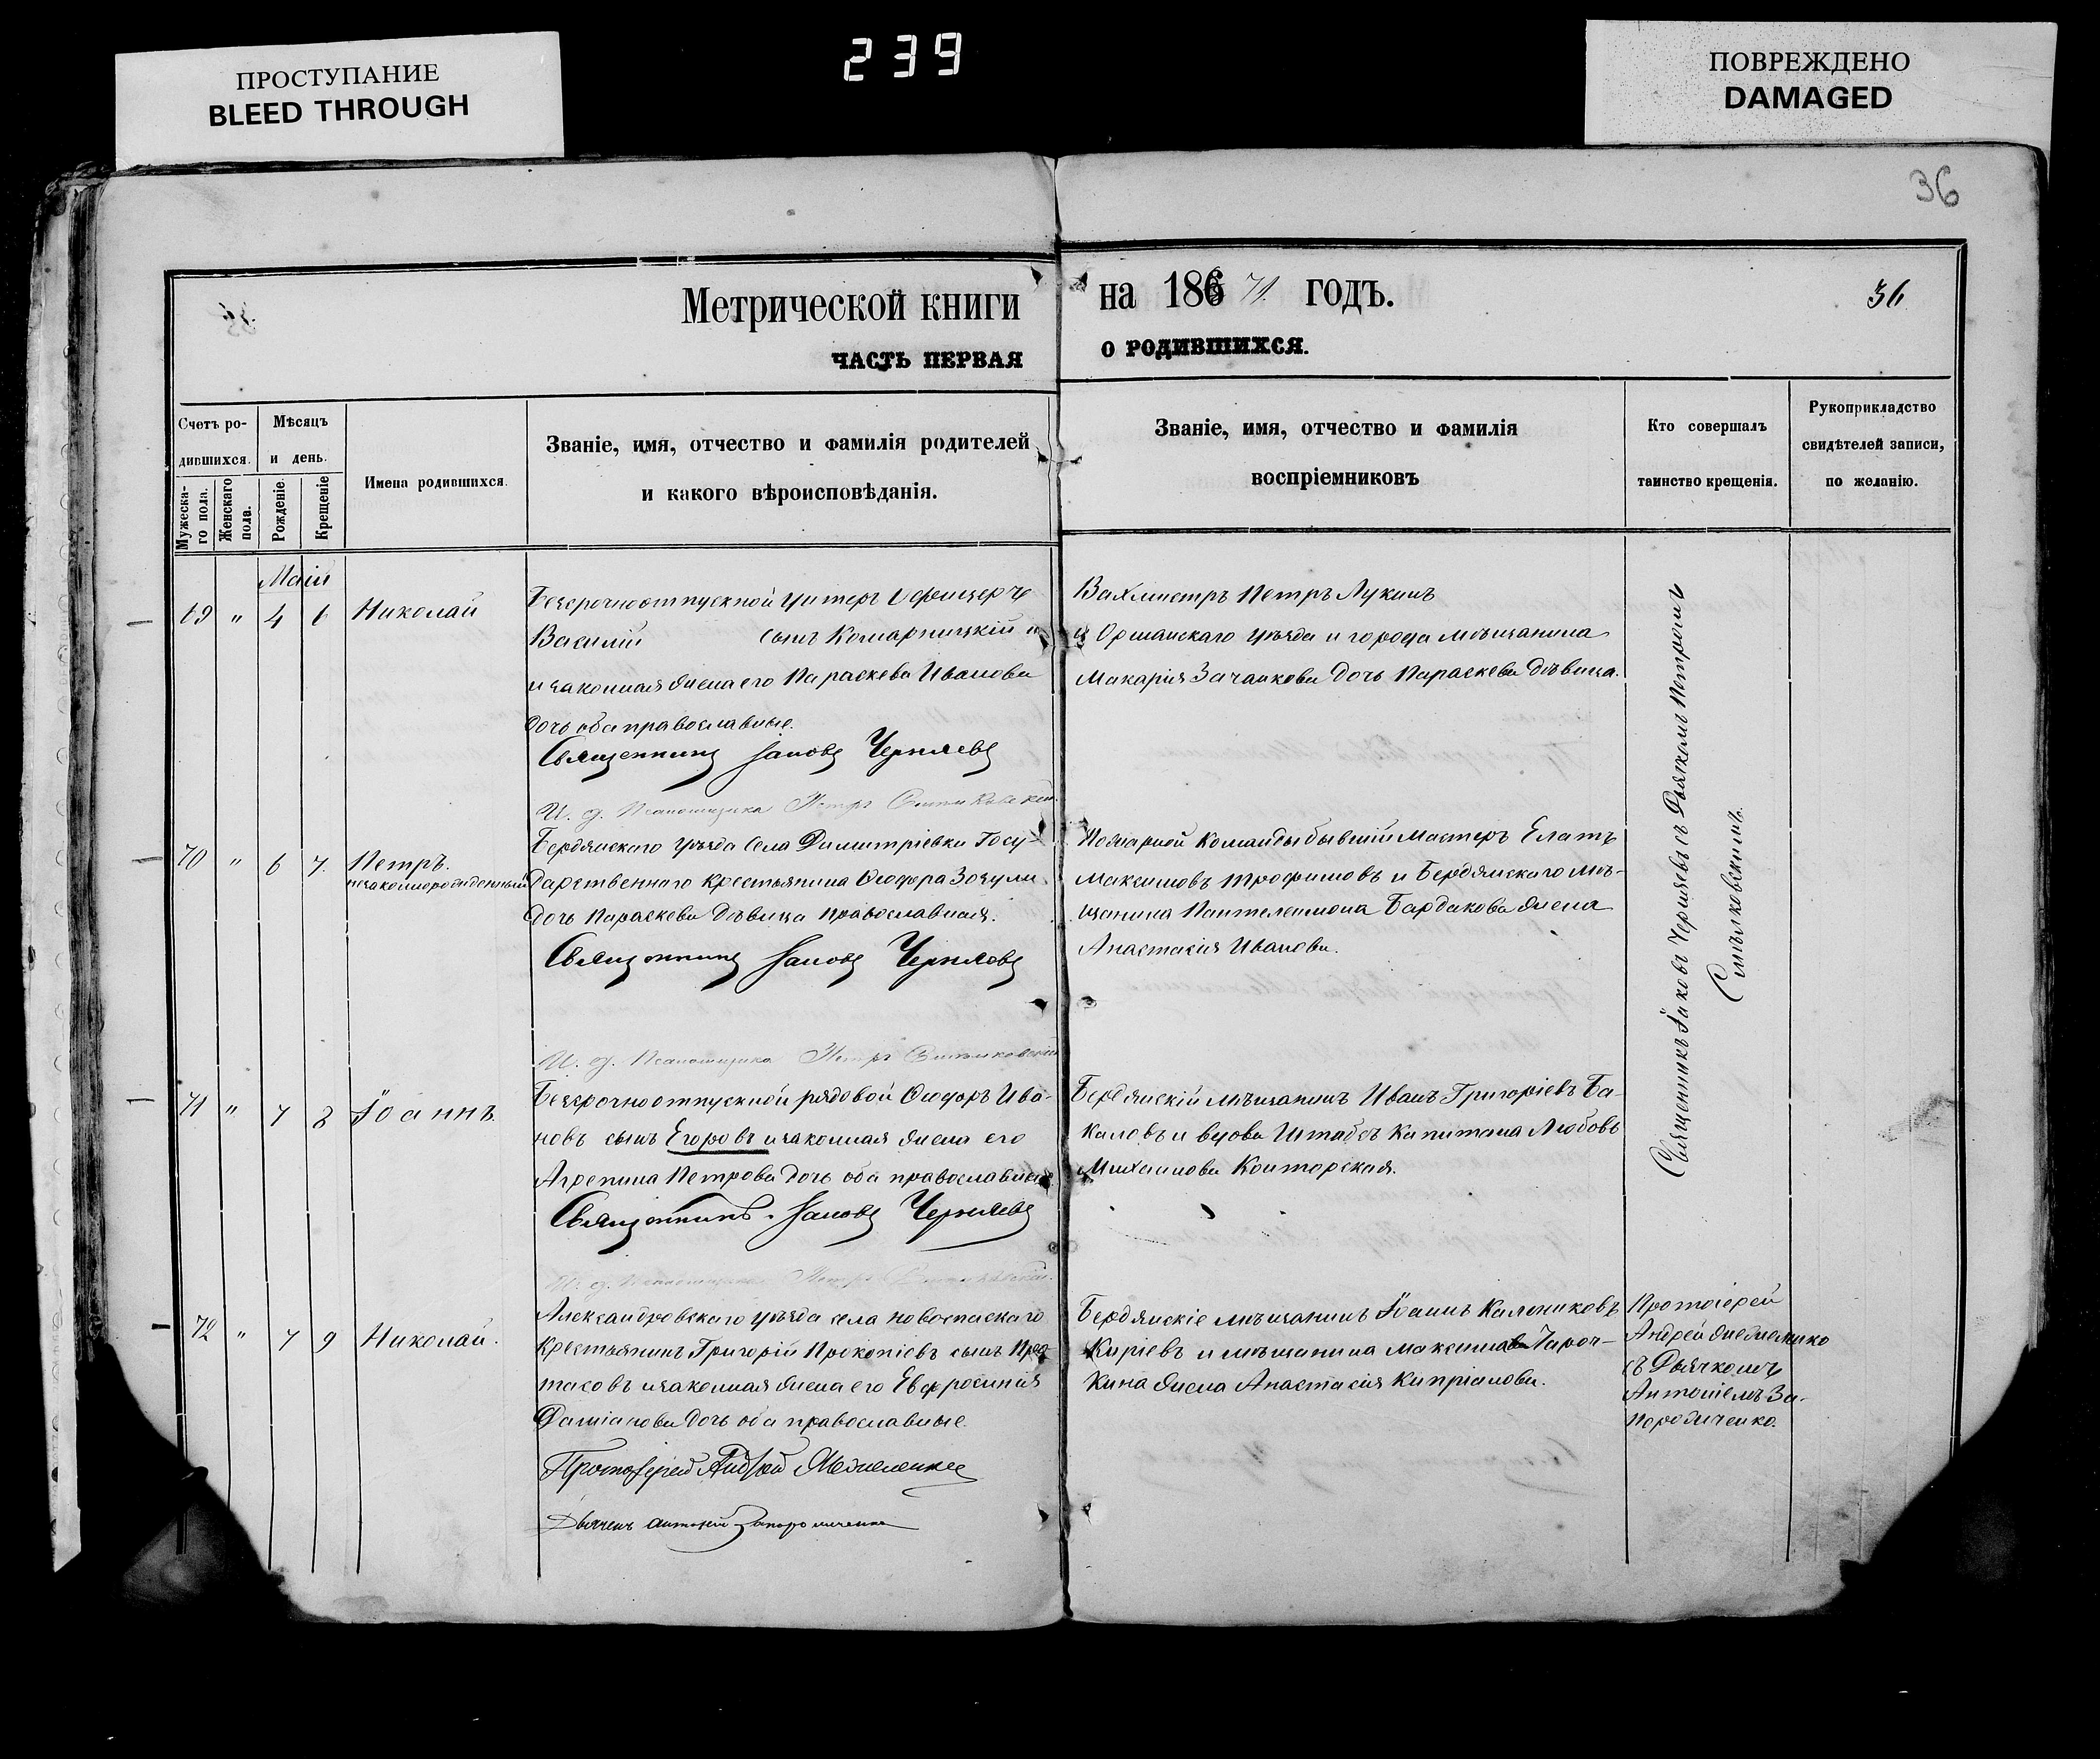 ПРОСТУПАНИЕ
BLEED THROUGH
239
ПОВРЕЖДЕНО
DAMAGED
36
Метрической книги на 186 71. годъ.
36
ЧАСТЬ ПЕРВАЯ о РОДИВШИХСЯ.
Счетъ ро-
дившихся.
Мужеска-
го пола.
Женскаго
пола.
Мѣсяцъ
и день.
Рожденіе.
Крещеніе
Имена родившихся.
Званіе, имя, отчество и фамилія родителей
и какого вѣроисповѣданія.
Званіе, имя, отчество и фамилія
воспріемниковъ
Кто совершалъ
таинство крещенія.
Рукоприкладство
свидѣтелей записи,
по желанію.
Маій
69 " 4 6 Николай
Безсрочноотпускной унтеръ Офицеръ
Василій сынъ Комарницкій и
и законная жена его Параскева Иванова
дочь оба православные.
Священникъ Іаковъ Черняевъ
И. д. Псаломщика Петръ
Вахмистръ Петръ Лукинъ
и Оршанскаго уѣзда и города мѣщанина
Макарія Зачаикова дочь Параскева дѣвица.
Священникъ Іаковъ Черняевъ съ Дьячкомъ Петромъ
70 " 6 7. Петръ.
незаконнорожденный
Бердянскаго уѣзда села Димитріевки Госу-
дарственнаго крестьянина Ѳеодора Зозули
дочь Параскева дѣвица православная.
Священникъ Іаковъ Черняевъ
И. д. Псаломщика Петръ
Пожарной Команды бывшій Мастеръ
Максимовъ Трофимовъ и Бердянскаго мѣ-
щанина Пантелеимона Бардакова жена
Анастасія Иванова.
71 " 7 8 Іоаннъ.
Безсрочноотпускной рядовой Ѳеодоръ Ива-
новъ сынъ Егоровъ и законная жена его
Агрепина Петрова дочь оба православные
Священникъ Іаковъ Черняевъ
И. д. Псаломщика Петръ
Бердянскій мѣщанинъ Иванъ Григоріевъ Ба-
каловъ и вдова Штабсъ Капитана Любовь
Михаилова Конторская.
72 " 7 9 Николай.
Александровскаго уѣзда села Новоспаскаго
Крестьянинъ Григорій Прокопіевъ сынъ Про-
тасовъ и законная жена его Евфросинія
Даміанова дочь оба православные
Протоіерей Андрей
Дьячекъ Антоній Запорожченко
Бердянскіе мѣщанинъ Іоаннъ Калениковъ
Киріевъ и мѣщанина Максима
кина жена Анастасія Кипріанова.
Протоіерей
Андрей
съ Дьячкомъ
Антоніемъ За-
порожченко.